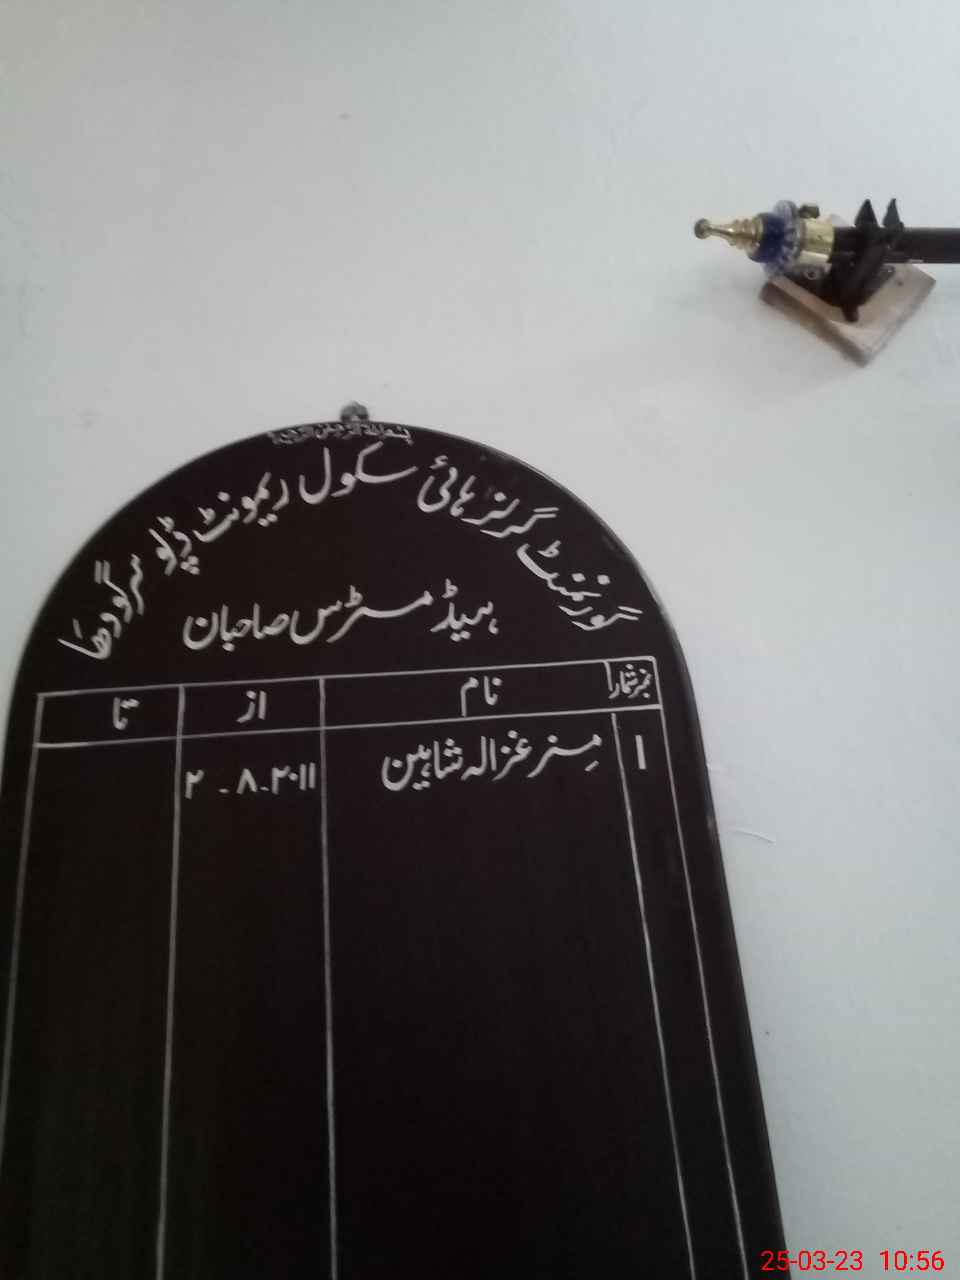 بسم اللہ الرحمن الرحیم
گورنمنٹ گرلز ہائی سکول ریمونٹ ڈپو سرگودھا
ہیڈ مسٹرس صاحبان
نمبر شمار نام از تا
۱ مسز غزالہ شاہین ۲۰۱۱-۸-۲
25-03-23 10:56